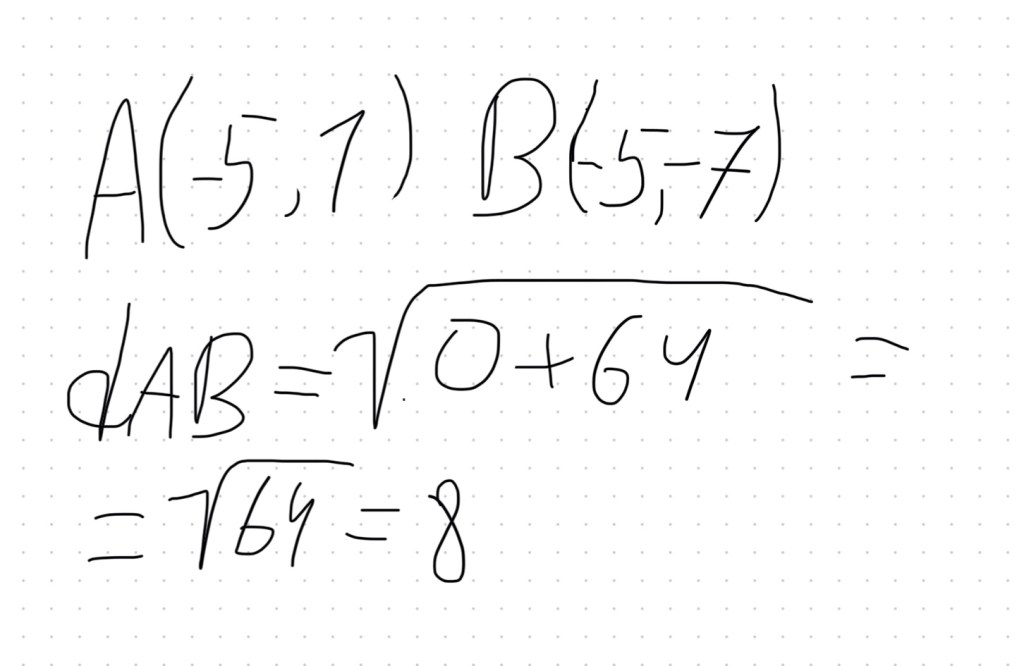 A(-5,1) B(-5,-7)
dAB=√0+64 =
=√64=8